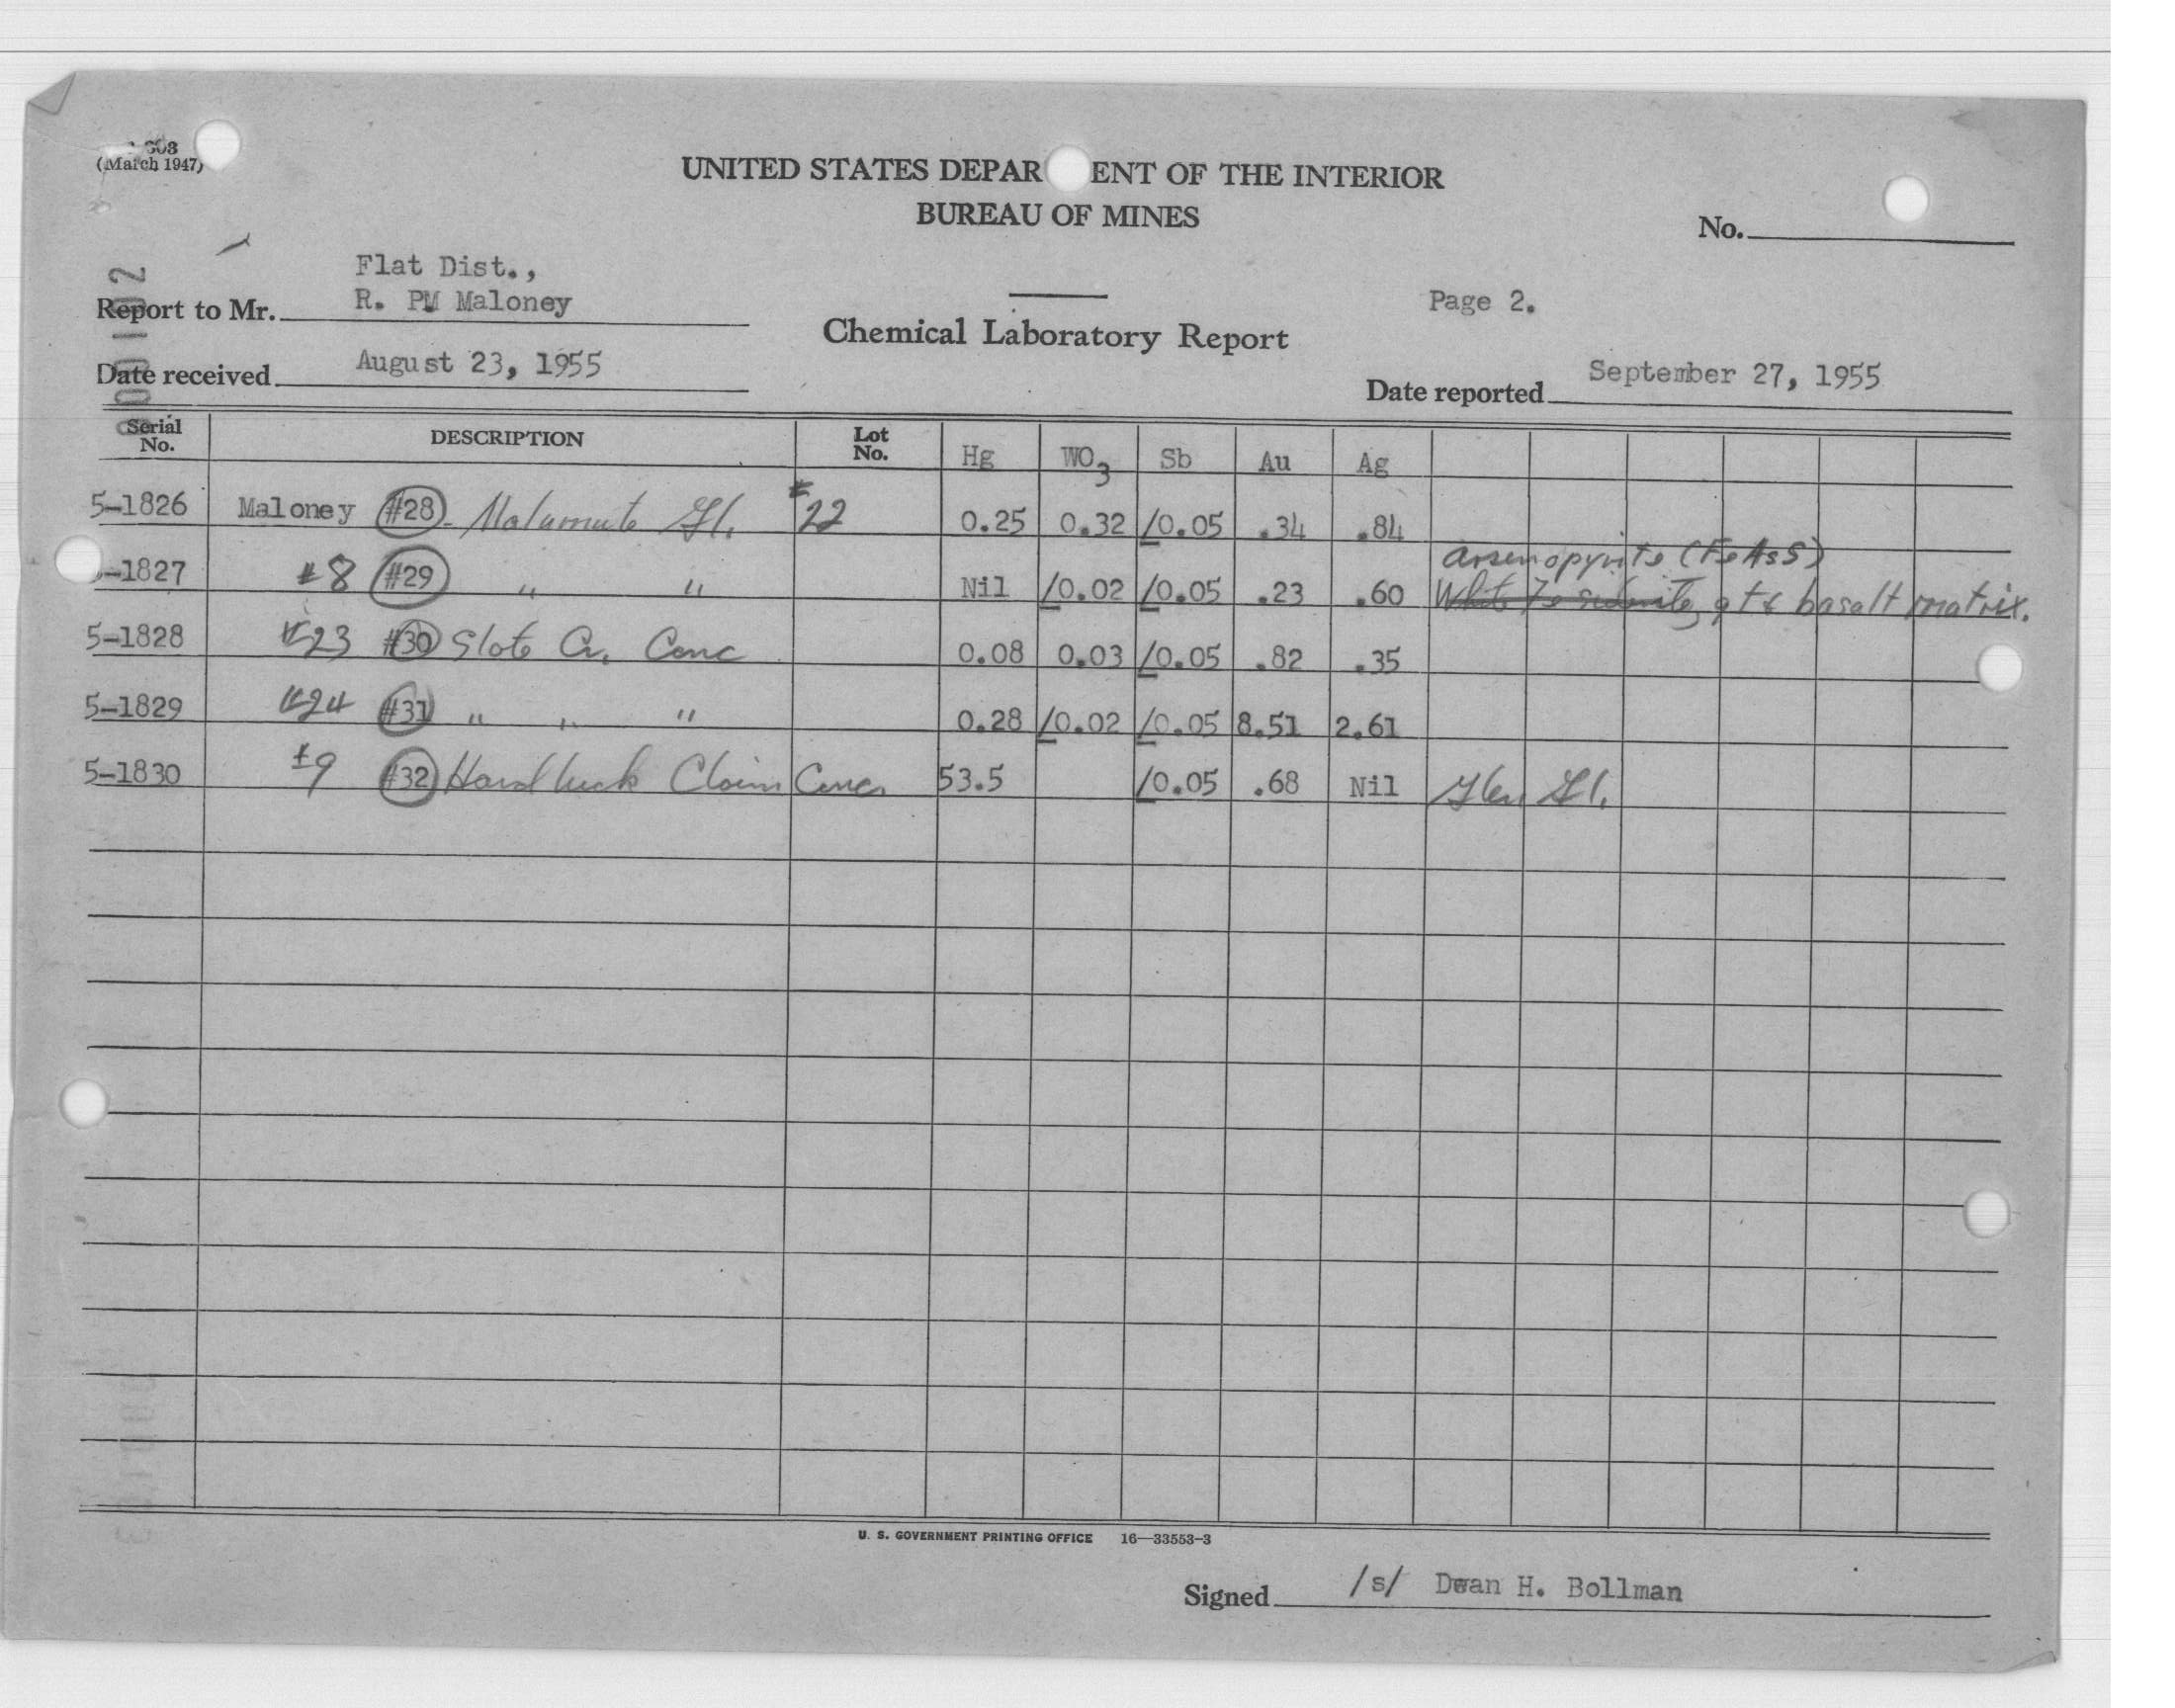 (March 1947)
UNITED STATES DEPAR ENT OF THE INTERIOR
BUREAU OF MINES
No.
Flat Dist.,
Report to Mr. R. PM Maloney
Page 2.
Chemical Laboratory Report
Date received August 23, 1955
Date reported September 27, 1955
Serial No. DESCRIPTION Lot No. Hg WO3 Sb Au Ag
5-1826 Maloney #28 - Malamute Gl. #22 0.25 0.32 /0.05 .34 .84
arsenopyrite (FeAsS)
-1827 #8 #29 " " Nil /0.02 /0.05 .23 .60 qtz basalt matrix.
5-1828 #23 #30 Slate Cr. Conc 0.08 0.03 /0.05 .82 .35
5-1829 #24 #31 " " " 0.28 /0.02 /0.05 8.51 2.61
5-1830 #9 #32 Hard luck Claim Conc. 53.5 /0.05 .68 Nil Glen Gl.
U. S. GOVERNMENT PRINTING OFFICE 16—33553-3
Signed /s/ Dean H. Bollman